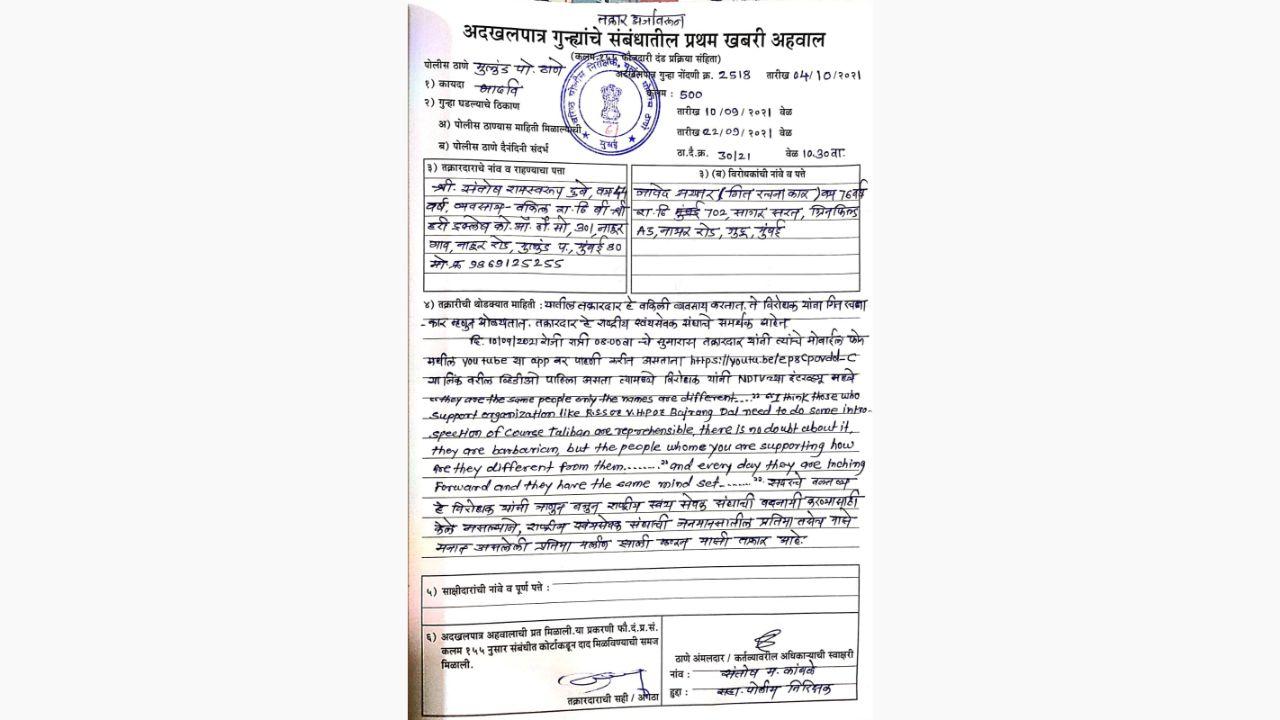 तक्रार अर्जावरून
अदखलपात्र गुन्ह्यांचे संबंधातील प्रथम खबरी अहवाल
(कलम १५५ फौजदारी दंड प्रक्रिया संहिता)
पोलीस ठाणे मुलुंड पो. ठाणे
अदखलपात्र गुन्हा नोंदणी क्र. 2518 तारीख 04/10/२०२१
१) कायदा भादवि
कलम : 500
२) गुन्हा घडल्याचे ठिकाण
तारीख 10/09/२०२1 वेळ
अ) पोलीस ठाण्यास माहिती मिळाल्याची
तारीख 22/09/२०२1 वेळ
ब) पोलीस ठाणे दैनंदिनी संदर्भ
ठा.दै.क्र. 30/21 वेळ 10.30 वा.
मुंबई
३) तक्रारदाराचे नांव व राहण्याचा पत्ता
श्री. संतोष रामस्वरूप दुबे, वय 44
वर्ष, व्यवसाय- वकिल रा. ठि बी
301, नाहूर
गाव, नाहूर रोड, मुलुंड प., मुंबई 80
मो. क्र 9869125255
३) (ब) विरोधकांची नांवे व पत्ते
जावेद अख्तर (गित रचनाकार) वय 76 वर्ष
रा. ठि मुंबई 702, सागर सरत, ग्रिनफिल्ड
A3, रोड, जुहू, मुंबई
४) तक्रारीची थोडक्यात माहिती : यातील तक्रारदार हे वकिली व्यवसाय करतात. ते विरोधक यांना गित रचना
-कार म्हणून ओळखतात. तक्रारदार हे राष्ट्रीय स्वंयसेवक संघाचे समर्थक आहेत
दि. 10/09/2021 रोजी रात्री 08:00 वा चे सुमारास तक्रारदार यांनी त्यांचे मोबाईल फोन
मधील youtube या app वर पाहणी करीत असताना https://youtu.be/
या लिंक वरील व्हिडीओ पाहिला असता त्यामध्ये विरोधक यांनी NDTV च्या इंटरव्ह्यू मध्ये
"they are the same people only the names are different...." "I think those who
support organization like RSS or VHP or Bajrang Dal need to do some intro-
spection of course Taliban are reprehensible, there is no doubt about it,
they are barbarian, but the people whome you are supporting how
are they different from them......." and every day they are inching
forward and they have the same mind set......". सदरचे वक्तव्य
हे विरोधक यांनी जाणून बुजुन राष्ट्रीय स्वंय सेवक संघाची बदनामी करण्यासाठी
केले असल्याने, राष्ट्रीय स्वंयसेवक संघाची जनमानसातील प्रतिमा तसेच माझे
मनात असलेली प्रतिमा मलीन झाली म्हणून माझी तक्रार आहे.
५) साक्षीदारांची नांवे व पूर्ण पत्ते :
६) अदखलपात्र अहवालाची प्रत मिळाली.या प्रकरणी फौ.दं.प्र.सं.
कलम १५५ नुसार संबंधीत कोर्टाकडून दाद मिळविण्याची समज
मिळाली.
तक्रारदाराची सही / अंगठा
ठाणे अंमलदार / कर्तव्यावरील अधिकाऱ्याची स्वाक्षरी
नांव : संतोष म. कांबळे
हुद्दा : सहा. पोलीस निरिक्षक